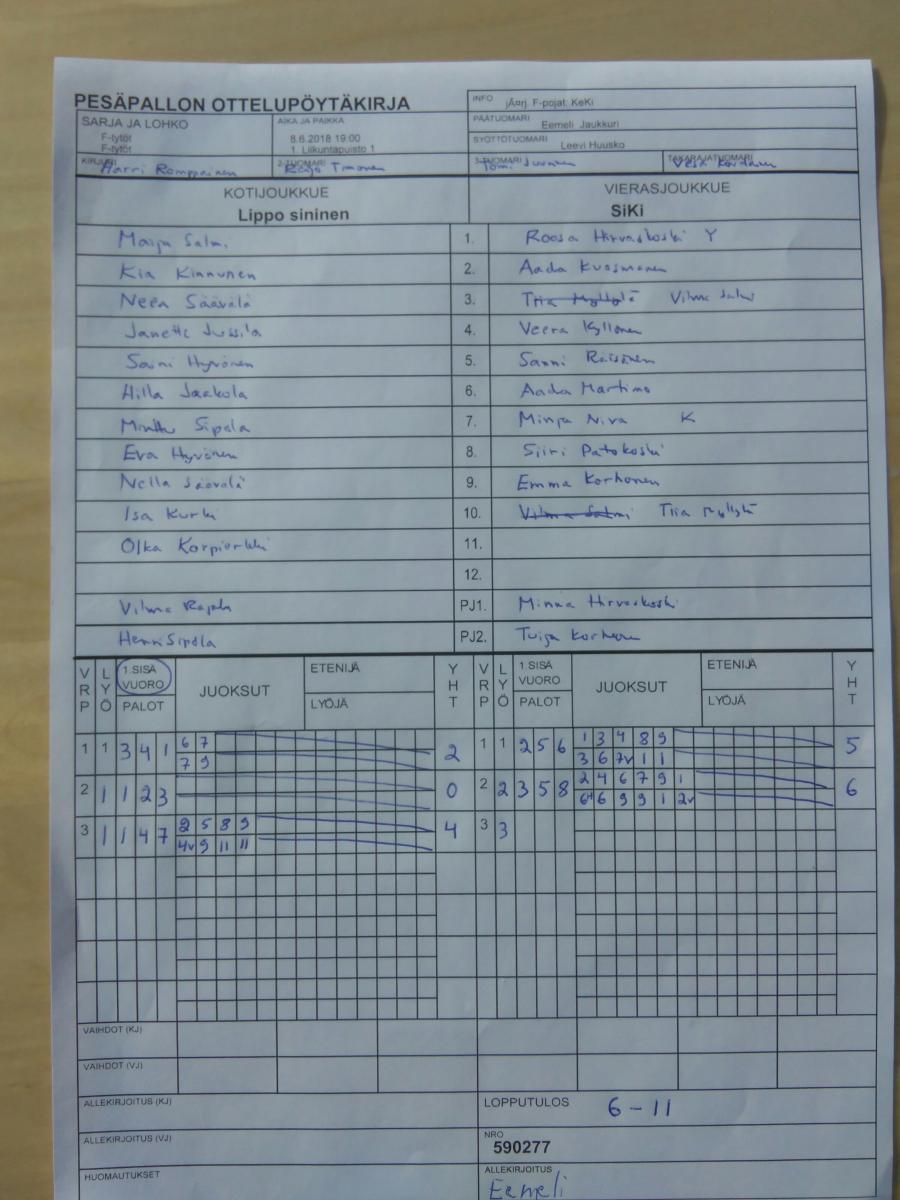 PESÄPALLON OTTELUPÖYTÄKIRJA
INFO jÃ¤rj. F-pojat: KeKi
SARJA JA LOHKO
F-tytöt
F-tytöt
AIKA JA PAIKKA
8.6.2018 19:00
1. Liikuntapuisto 1
PÄÄTUOMARI Eemeli Jaukkuri
SYÖTTÖTUOMARI Leevi Huusko
KIRJURI Harri Romppainen
2-TUOMARI
3-TUOMARI Tomi
TAKARAJATUOMARI Vesa
KOTIJOUKKUE
Lippo sininen
VIERASJOUKKUE
SiKi
Maija Salmi 1. Roosa Hirvaskoski Y
Kia Kinnunen 2. Aada Kuosmanen
Neea Säävälä 3. Tiia Myllylä Vilma Salmi
Janette Jussila 4. Veera Kyllönen
Saini Hyvönen 5. Sanni Räisänen
Hilla Jaakola 6. Aada Martimo
Minttu Sipola 7. Minja Niva K
Eva Hyvönen 8. Siiri Patokoski
Nella Säävälä 9. Emma Korhonen
Isa Kurki 10. Vilma Salmi Tiia Myllylä
Olka 11.
12.
Vilma Rajala PJ1. Minna Hirvaskoski
Henri Sipola PJ2. Tuija Korhonen
VRP LYÖ 1.SISÄ VUORO PALOT JUOKSUT ETENIJÄ LYÖJÄ YHT VRP LYÖ 1.SISÄ VUORO PALOT JUOKSUT ETENIJÄ LYÖJÄ YHT
1 1 3 4 1 6 7 2 1 1 2 5 6 1 3 4 8 9 5
7 9 3 6 7v 1 1
2 1 1 2 3 0 2 2 3 5 8 2 4 6 7 9 1 6
6 9 9 1 2v
3 1 1 4 7 2 5 8 9 4 3 3
4v 9 11 11
VAIHDOT (KJ)
VAIHDOT (VJ)
ALLEKIRJOITUS (KJ)
LOPPUTULOS 6 - 11
ALLEKIRJOITUS (VJ)
NRO
590277
HUOMAUTUKSET
ALLEKIRJOITUS
Eemeli